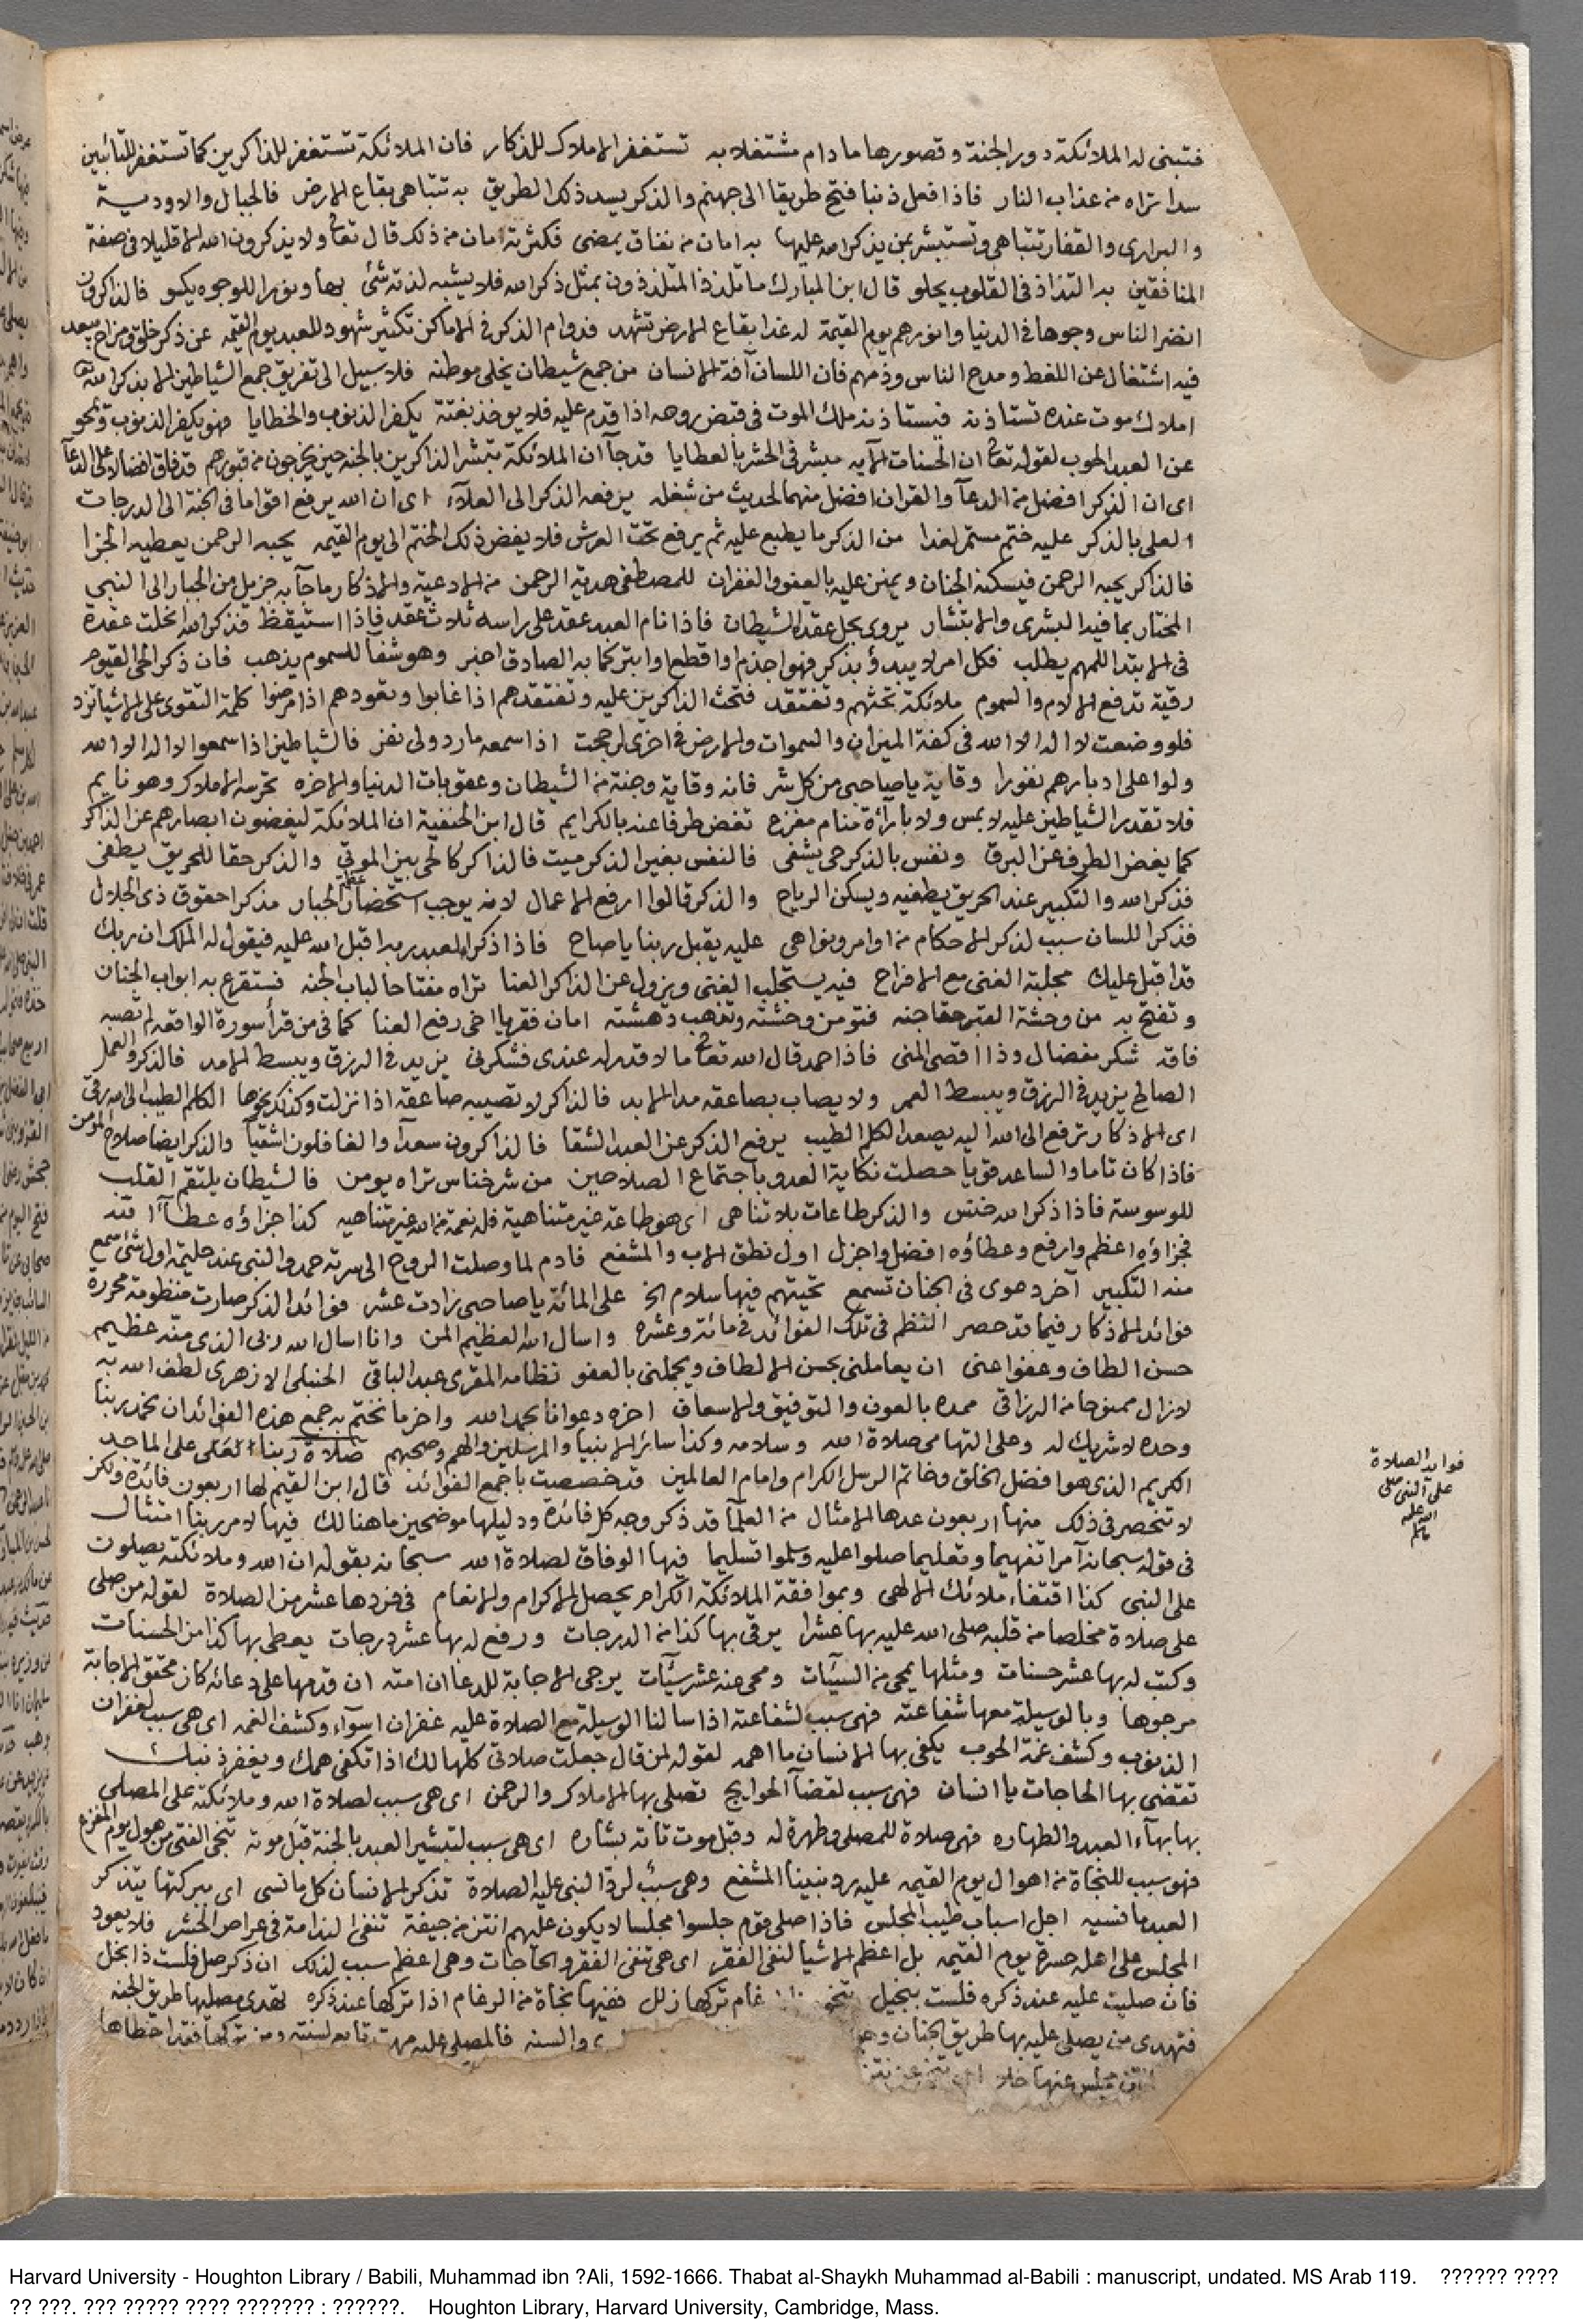 فتبنى له الملائكة دور الجنة وقصورها مادام مشتغلا به تستغفر الاملاك للذكار فان الملائكة تستغفر للذاكرين كما تستغفر للتائبين
سدا تراه من عذاب النار فاذا فعل ذنبا فتح طريقا الى جهنم والذكر يسد ذلك الطريق به تتباهى بقاع الارض فالجبال والاودية
والبرارى والقفار تتباهى وتستبشر بمن يذكر الله عليها به امان من نفاق يمضى فكثرته امان من ذلك قال تعالى ولا يذكرون الله الا قليلا فى صفة
المنافقين به التذاذ فى القلوب يحلو قال ابن المبارك ما تلذذ المتلذذون بمثل ذكر الله فلا يشبه لذته شئ بها ونورا للوجوه يكسو فالذاكرون
انضر الناس وجوها فى الدنيا وانورهم يوم القيمة له غدا بقاع الارض تشهد فدوام الذكر فى الاماكن تكثير شهود للعبد يوم القيمه عن ذكر خلق ومزاح يبعد
فيه اشتغال عن اللغط ومدح الناس وذمهم فان اللسان آفة الانسان من جمع شيطان يخلى موطنه فلا سبيل الى تفريق جمع الشياطين الا بذكر الله
املاك موت عنده تستاذنه فيستاذنه ملك الموت فى قبض روحه اذا قدم عليه فلا يوخذ بغتة يكفر الذنوب والخطايا فهو يكفر الذنوب وتمحو
عن العبد الحوب لقوله تعالى ان الحسنات الآيه مبشر فى الحشر بالعطايا قد جآ ان الملائكة تبشر الذاكرين بالجنه حين يخرجون من قبورهم قد فاق افضالا على الدعآ
اى ان الذكر افضل من الدعآ والقران افضل منهما لحديث من شغله يرفعه الذكر الى العلآء اى ان الله يرفع اقواما فى الجنة الى الدرجات
العلى بالذكر عليه ختم مستمر لغدا من الذكر ما يطبع عليه ثم يرفع تحت العرش فلا يفض ذلك الختم الى يوم القيمه يحبه الرحمن يعطيه الجزا
فالذاكر يحبه الرحمن فيسكنه الجنان ويمنن عليه بالعفو والغفران للمصطفى هدية الرحمن من الادعية والاذكار ما جآ به جزيل من الجبار الى النبي
المختار بما فيه البشرى والانتشار يروى يحل عقد الشيطان فاذا نام العبد عقد على راسه ثلاث عقد فاذا استيقظ فذكر الله انحلت عقدة
فى الابتدا للمهم يطلب فكل امر لا يبدؤ بذكر فهو اجذم او اقطع او ابتر كما به الصادق اخبر وهو شفآ للسموم يذهب فان ذكر الحى القيوم
رقية تدفع الالام والسموم ملائكة تحثهم وتفتقد فتحث الذاكرين عليه وتفتقدهم اذا غابوا وتعودهم اذا مرضوا كلمة التقوى على الاشيا تزد
فلو وضعت لا اله الا الله فى كفة الميزان والسموات والارض فى اخرى لرجحت اذا سمعه مارد ولى نفر فالشياطين اذا سمعوا لا اله الا الله
ولوا على ادبارهم نفورا وقاية يا صاحبى من كل شر فانه وقاية وجنة من الشيطان وعقوبات الدنيا والاخره تحرسه الاملاك وهو نايم
فلا تقدر الشياطين عليه لا بمس ولا بارآءة منام مفزع تغض طرفا عنه بالكرايم قال ابن الحنفية ان الملائكة ليغضون ابصارهم عن الذاكر
كما يغض الطرف عن البرق ونفس بالذكر حى يشفى فالنفس بغير الذكر ميت فالذاكر كالحى بين الموتى والذكر حقا للحريق يطفى
فذكر الله والتكبير عند الحريق يطفيه ويسكن الرياح والذكر قالوا ارفع الاعمال لانه يوجب استحضار عظمة الجبار مذكرا حقوق ذى الجلال
فذكر اللسان سبب لذكر الاحكام من اوامر ونواهى عليه يقبل ربنا يا صاح فاذا ذكر العبد ربه اقبل الله عليه فيقول له الملك ان ربك
قد اقبل عليك مجلبة الغنى مع الافراح فيه يستجلب الغنى ويزول عن الذاكر العنا تراه مفتاحا لباب الجنه فتستقرع به ابواب الجنان
وتفتح به من وحشة القبر حقا جنه فتومن وحشته وتذهب دهشته امان فقر يا اخى رفع العنا كما فى من قرأ سورة الواقعه لم تصبه
فاقه شكر بفضال وذا اقصى المنى فاذا حمد قال الله تعالى ما لا قدر له عندى فشكرنى يزيد فى الرزق ويبسط الامد فالذكر والعمل
الصالح يزيد فى الرزق ويبسط العمر ولا يصاب بصاعقه مدا الابد فالذاكر لا تصيبه صاعقة اذا نزلت وكذلك نحوها الكلم الطيب الى الله رقى
اى الاذكار ترفع الى الله اليه يصعد الكلم الطيب يرفع الذكر عن العبد الشقا فالذاكرون سعدآ والغافلون اشقيآ والذكر ايضا صلاح المومن
فاذا كان تاما والساعد قويا حصلت نكاية العدو باجتماع الصلاحين من شر خناس تراه يومن فالشيطان يلتقم القلب
للوسوسة فاذا ذكر الله خنس والذكر طاعات بلا تناهى اى هو طاعة غير متناهية فله نعمة من الله غير متناهيه كذا جزاؤه عطآ الله
فجزاؤه اعظم وارفع وعطاؤه افضل واجزل اول نطق الاب والمشفع فادم لما وصلت الروح الى سرته حمد والنبى عند حليمه اول شئ سمع
منه التكبير آخر دعوى فى الجنان تسمع تحيتهم فيها سلام الخ على المائة يا صاحبى زادت عشر فوائد الذكر صارت منظومة محررة
فوائد الاذكار فيما قد حصر النظم فى تلك الفوائد فى مائة وعشره واسال الله العظيم المن وانا اسال الله ربى الذى منه عظيم
حسن الطاف وعفوا عنى ان يعاملنى بحسن الالطاف ويجملنى بالعفو نظامه المقرى عبد الباقى الحنبلى الازهرى لطف الله به
لا زال ممنوحا من الرزاق ممده بالعون والتوفيق والاسعاف اخره دعوانا بحمد الله واخر ما نختم به جمع هذه الفوائد ان نحمد ربنا
وحده لا شريك له وعلى التهامى صلاة الله وسلامه وكذا سائر الانبيا والمرسلين والهم وصحبهم صلاة ربنا العلى على الماجد
الكريم الذى هو افضل الخلق وخاتم الرسل الكرام وامام العالمين قد خصصت باجمع الفوائد قال ابن القيم لها اربعون فائدة ولكن
لا تنحصر فى ذلك منها اربعون عدها الامثال من العلمآ قد ذكر وجه كل فائدة ودليلها موضحين ما هنالك فيها لامر ربنا امتثال
فى قوله سبحانه آمرا تفهيما وتعليما صلوا عليه وسلموا تسليما فيها الوفاق لصلاة الله سبحانه بقوله ان الله وملائكته يصلون
على النبى كذا اقتفاء ملائك الالهى وبموافقة الملائكة الكرام يحصل الاكرام والانعام فى فردها عشر من الصلاة لقوله من صلى
على صلاة مخلصا من قلبه صلى الله عليه بها عشرا يرقى بها كذا من الدرجات ورفع له بها عشر درجات يعطى بها كذا من الحسنات
وكتب له بها عشر حسنات ومثلها يمحى من السيئات ومحى عنه عشر سيئات يرجى الاجابة للدعا ان امته ان قدمها على دعائه كان محقق الاجابة
مرجوها وبالوسيلة معها شفاعته فهى سبب لشفاعته اذا سالنا الوسيلة مع الصلاة عليه غفران اسوآء وكشف الغمه اى هى سبب لغفران
الذنوب وكشف غمة الحوب يكفى بها الانسان ما اهمه لقوله لمن قال جعلت صلاتى كلها لك اذا تكفى همك ويغفر ذنبك
تقضى بها الحاجات يا انسان فهى سبب لقضآ الحوايج تصلى بها الاملاك والرحمن اى هى سبب لصلاة الله وملائكته على المصلى
بها بهآء العبد والطهاره فهى صلاة للمصلى وطهرة له وقبل موت تاته بشاره اى هى سبب لتبشير العبد بالجنة قبل موته تنجى الفتى من هول يوم المفزع
فهو سبب للنجاة من اهوال يوم القيمه عليه رد نبينا المشفع وهى سبب لرد النبى عليه الصلاة تذكر الانسان كل ما نسى اى ببركتها يتذكر
العبد ما نسيه اجل اسباب طيب المجلس فاذا صلى قوم جلسوا مجلسا لا يكون عليهم انتن من جيفة تنفى الندامة فى عراص الحشر فلا يعود
المجلس على اهله حسرة يوم القيمه بل اعظم الاشيا لنفى الفقر اى هى تنفى الفقر والحاجات وهى اعظم سبب لذلك ان ذكر صل فلست ذا بخل
فان صليت عليه عند ذكره فلست ببخيل تركها زلل ففيها نجاة من الرغام اذا تركها عند ذكره تهدى مصليها طريق الجنه
فتهدى من يصلى عليه بها طريق الجنان والسنه فالمصلى عليه تابع لسنته ومن تركها فقد اخطاها
فوايد الصلاة
على النبى صلى
الله عليه
وسلم
Harvard University - Houghton Library / Babili, Muhammad ibn ?Ali, 1592-1666. Thabat al-Shaykh Muhammad al-Babili : manuscript, undated. MS Arab 119. ?????? ????
?? ???. ??? ????? ???? ??????? : ??????. Houghton Library, Harvard University, Cambridge, Mass.